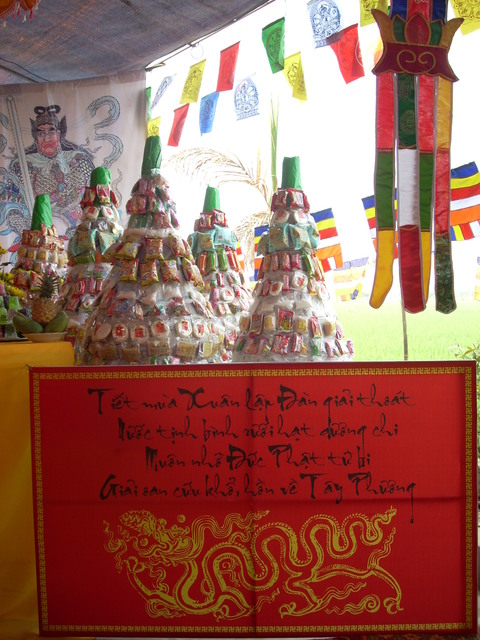 Tiết mùa Xuân lập Đàn giải thoát
Nước tịnh bình rưới hạt dưỡng chi
Muôn nhờ Đức Phật từ bi
Giải oan cứu khổ, hồn về Tây Phương